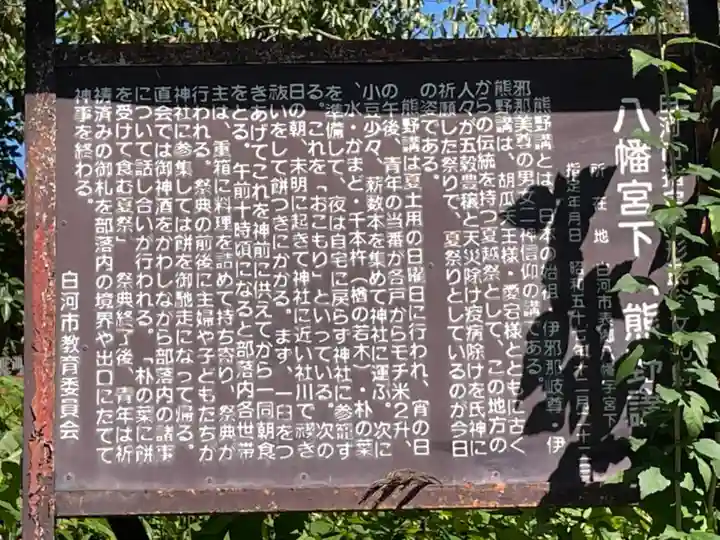 八幡宮下「熊野講
所在地 白河市 八幡宮下
指定年月日 昭和五十 年十二月二十一日
熊野講とは、日本の始祖 伊邪那岐尊。伊
邪那美尊の男女二神信仰の講である。
熊野講は、胡瓜天王様・愛宕様とともに古く
からの伝統を持つ夏越祭として、この地方の
人々が五穀豊穣と天災除け疫病除けを氏神に
祈願した祭りで、夏祭りとしているのが今日
の姿である。
熊野講は夏土用の日曜日に行われ、宵の日
の午後、青年の当番が各戸からモチ米2升、
小豆少々、薪数本を集めて神社に運ぶ。次に
、水・かまど・千本杵(楢の若木)・朴の葉
を準備して、夜は自宅に戻らず神社に参籠す
る。これを「おこもり」といっている。次の
日の朝、未明に起きて神社に近い社川で禊ぎ
祓いをして餅つきにかかる。まず、一臼をつ
きあげてこれを神前に供えてから一同朝食
をとる。午前十時頃になると部落内各世帯
主は、重箱に料理を詰めて持ち寄り、祭典が
行われる。祭典の前後に主婦や子どもたちが
神社に参集しては餅を御馳走になって帰る。
直会では御神酒をかわしながら部落内の諸事
について話し合いが行われる。「朴の葉に餅
を受けて食む夏祭」 祭典終了後、青年は祈
祷済みの御札を部落内の境界や出口にたてて
神事を終わる。
白河市教育委員会